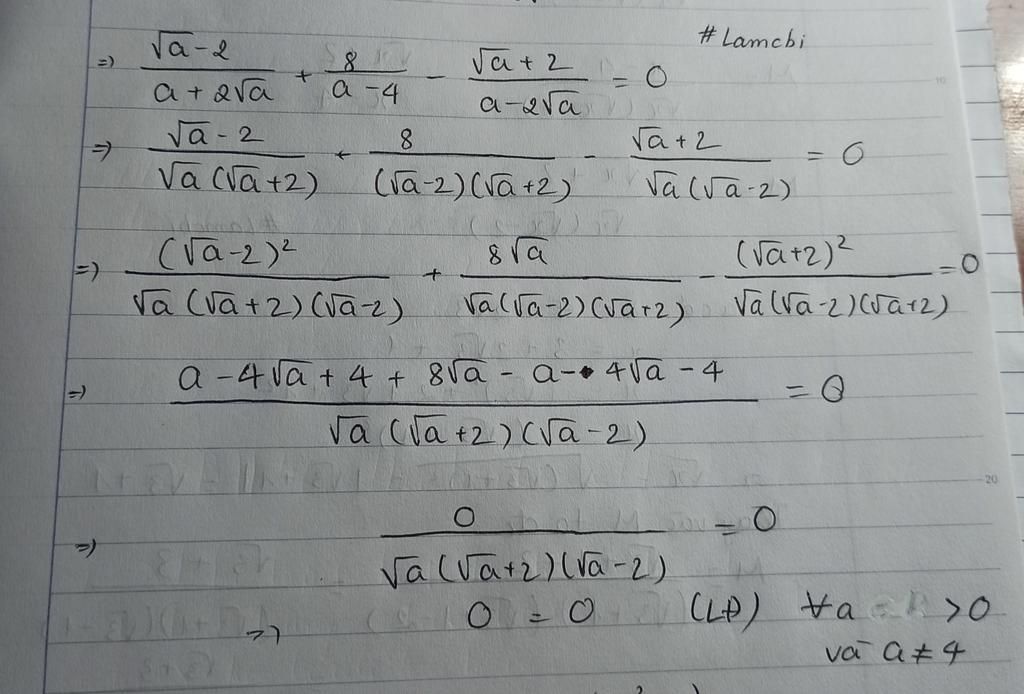 #Lamcbi
=> (√a-2)/(a+2√a) + 8/(a-4) - (√a+2)/(a-2√a) = 0
=> (√a-2)/(√a(√a+2)) + 8/((√a-2)(√a+2)) - (√a+2)/(√a(√a-2)) = 0
=> (√a-2)²/(√a(√a+2)(√a-2)) + 8√a/(√a(√a-2)(√a+2)) - (√a+2)²/(√a(√a-2)(√a+2)) = 0
=> (a-4√a+4+8√a-a-4√a-4)/(√a(√a+2)(√a-2)) = 0
=> 0/(√a(√a+2)(√a-2)) = 0
=> 0 = 0 (LĐ) ∀a >0
và a≠4